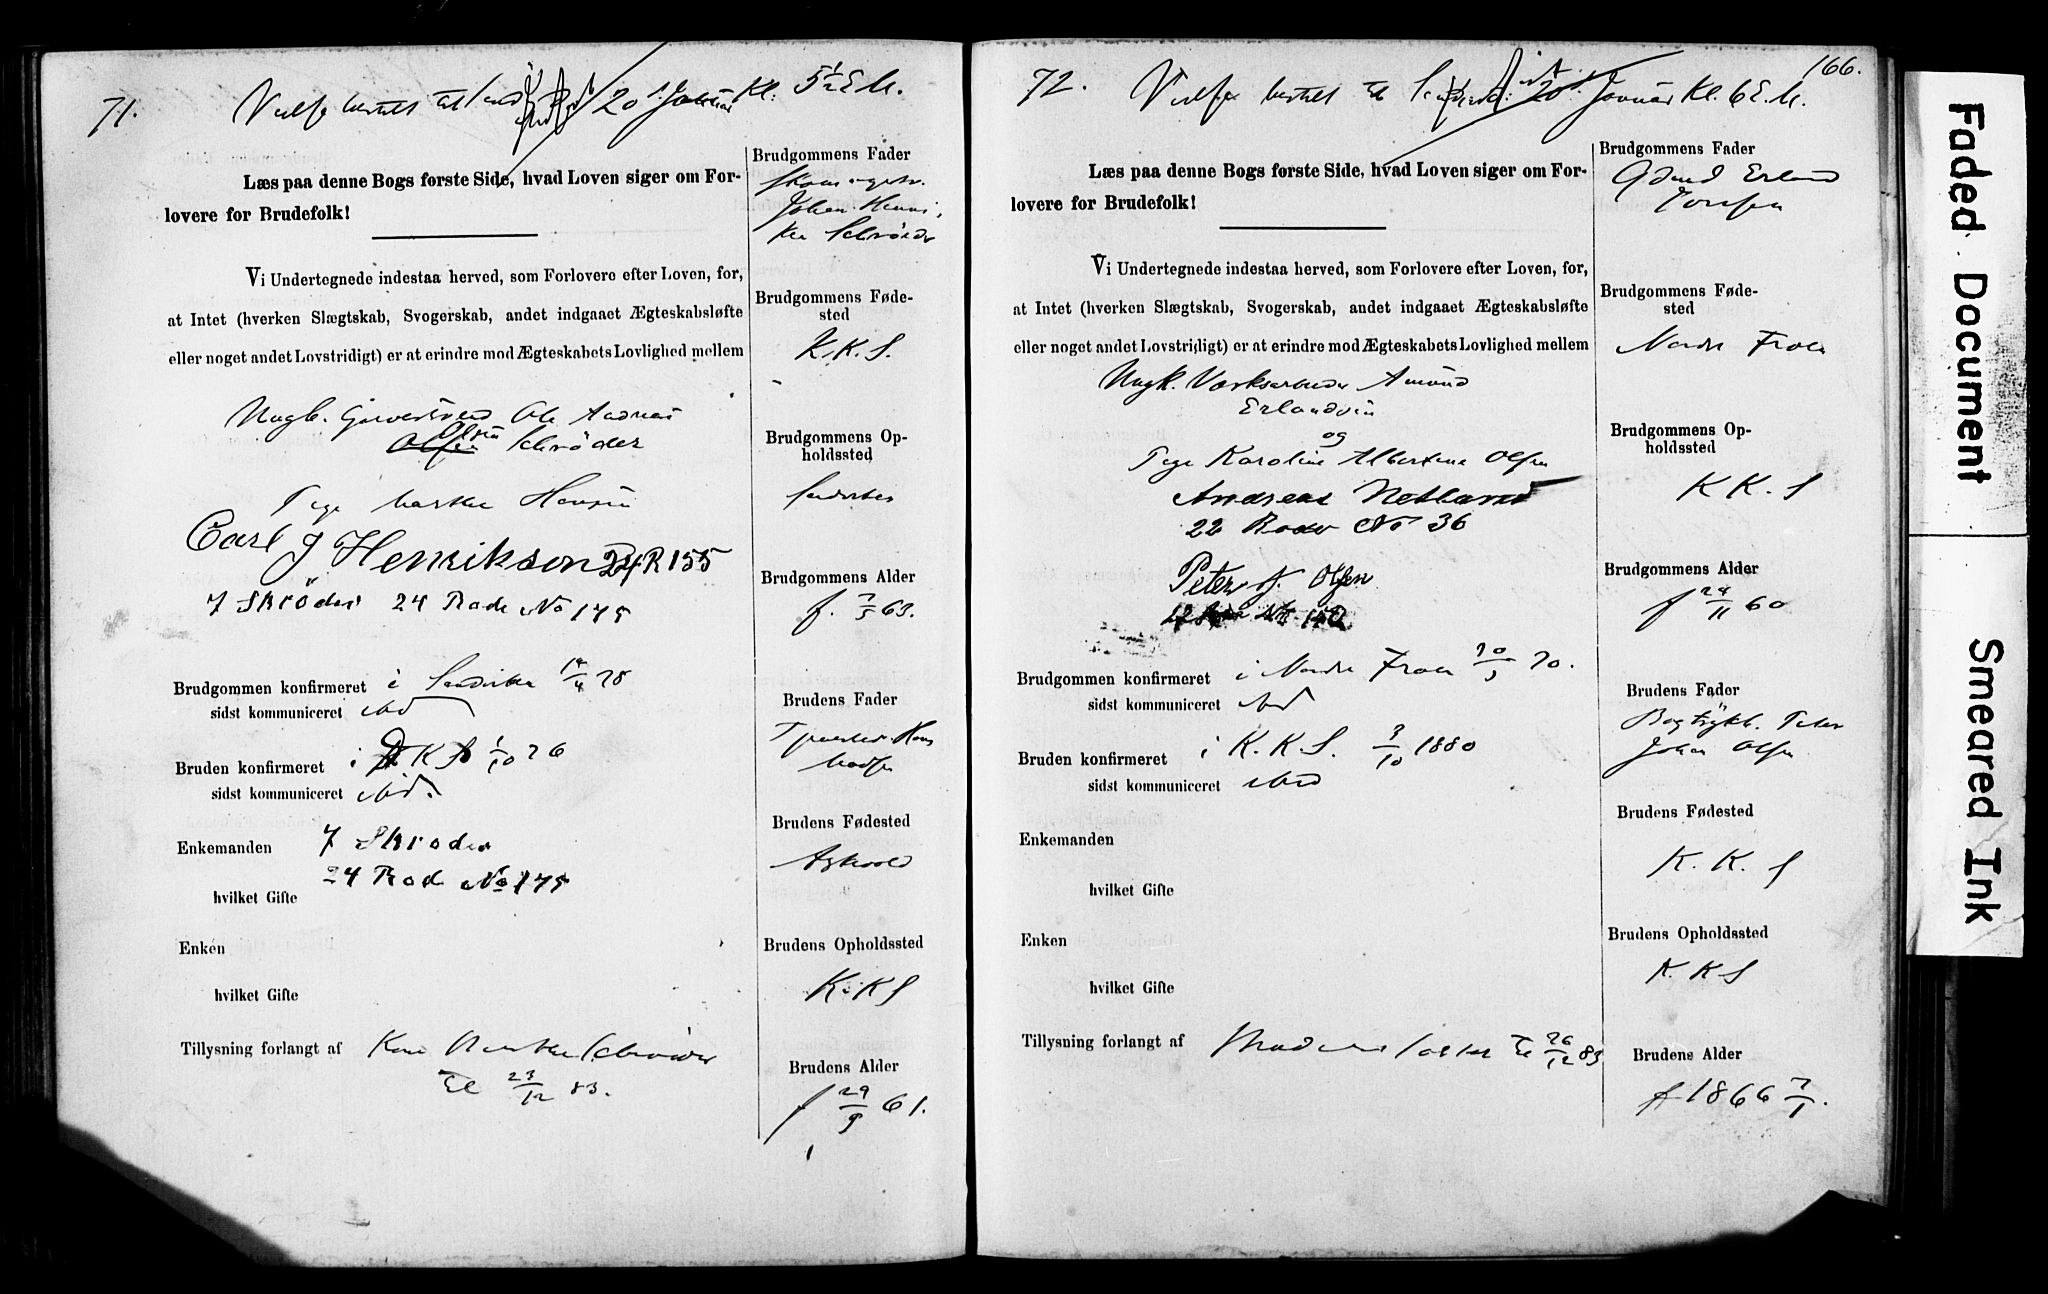 71.
Vielse bestilt til 20 Januar Kl: 5½ E.M.
Læs paa denne Bogs første Side, hvad Loven siger om For-
lovere for Brudefolk!
Vi Undertegnede indestaa herved, som Forlovere efter Loven, for,
at Intet (hverken Slægtskab, Svogerskab, andet indgaaet Ægteskabsløfte
eller noget andet Lovstridigt) er at erindre mod Ægteskabets Lovlighed mellem
Ungk. Ole Andreas
Olsen Schrøder
Pige Hansen
Carl J Henrikson 24 R 155
Skrøder 24 Rode No 175
Brudgommen konfirmeret i Sandviken 78
sidst kommuniceret ibid
Bruden konfirmeret i K K 1/10 76
sidst kommuniceret ibid.
Enkemanden Skrøder
24 Rod No 175
hvilket Gifte
Enken
hvilket Gifte
Tillysning forlangt af Schrøder
til 23/12 83.
Brudgommens Fader
Johan Henri-
Schrøder
Brudgommens Føde-
sted
K. K. S.
Brudgommens Op-
holdssted
Brudgommens Alder
f. 7/5 63.
Brudens Fader
Hans
Madsen
Brudens Fødested
Askvold
Brudens Opholdssted
K. K S
Brudens Alder
f 29/9 61.
166.
72.
Vielse bestilt til 20 Januar Kl. 6 E.M.
Læs paa denne Bogs første Side, hvad Loven siger om For-
lovere for Brudefolk!
Vi Undertegnede indestaa herved, som Forlovere efter Loven, for,
at Intet (hverken Slægtskab, Svogerskab, andet indgaaet Ægteskabsløfte
eller noget andet Lovstridigt) er at erindre mod Ægteskabets Lovlighed mellem
Ungk. Værksarbeider Amund
Erlandsen
og
Pige Karoline Albertine Olsen
Andreas Netland
22 Rode No 36
Peter J. Olsen
Brudgommen konfirmeret i Nordre Froen 70.
sidst kommuniceret ibid
Bruden konfirmeret i K. K. S. 3/10 1880
sidst kommuniceret ibid
Enkemanden
hvilket Gifte
Enken
hvilket Gifte
Tillysning forlangt af til 26/12 83
Brudgommens Fader
Gdmd Erland
Brudgommens Føde-
sted
Nordre Froen
Brudgommens Op-
holdssted
K K. S
Brudgommens Alder
f 24/11 60
Brudens Fader
Bogtrykk. Peter
Johan Olsen
Brudens Fødested
K. K. S
Brudens Opholdssted
K. K S
Brudens Alder
f 1866 7/1.
Faded Document
Smeared Ink